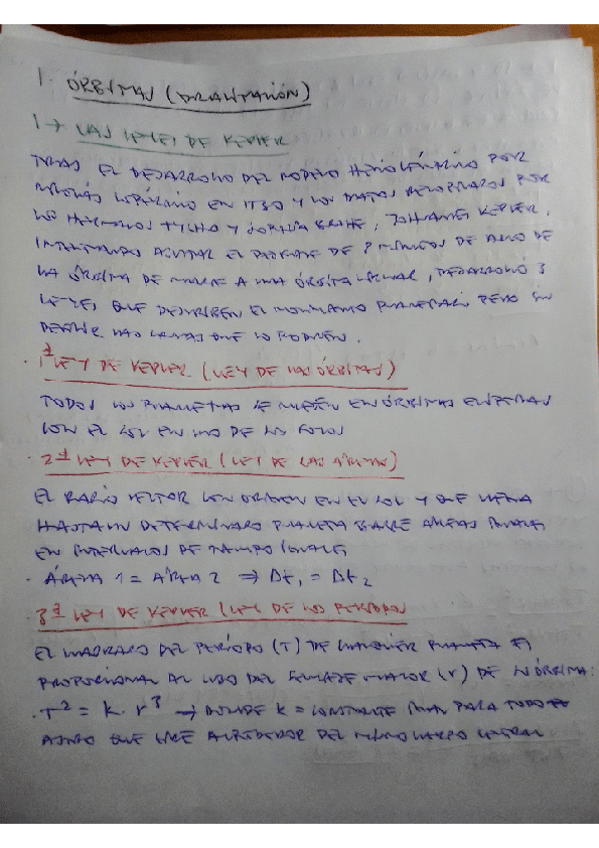 1. ÓRBITAS (GRAVITACIÓN)
1 → LAS LEYES DE KEPLER
TRAS EL DESARROLLO DEL MODELO HELIOCÉNTRICO POR
NICOLÁS COPÉRNICO EN Y LOS DATOS RECOPILADOS POR
LOS HERMANOS TYCHO Y SOPHIA BRAHE, JOHANNES KEPLER,
INTENTANDO AJUSTAR EL DE 8 MINUTOS DE ARCO DE
LA ÓRBITA DE MARTE A UNA ÓRBITA CIRCULAR, DESARROLLÓ 3
LEYES QUE DESCRIBEN EL MOVIMIENTO PLANETARIO, PERO SIN
DEFINIR LAS CAUSAS QUE LO PRODUCEN.
· 1ª LEY DE KEPLER (LEY DE LAS ÓRBITAS)
TODOS LOS PLANETAS SE MUEVEN EN ÓRBITAS ELÍPTICAS
CON EL SOL EN UNO DE LOS FOCOS
· 2ª LEY DE KEPLER (LEY DE LAS ÁREAS)
EL RADIO VECTOR CON ORIGEN EN EL SOL Y QUE LLEGA
HASTA UN DETERMINADO PLANETA BARRE ÁREAS IGUALES
EN INTERVALOS DE TIEMPO IGUALES
· ÁREA 1 = ÁREA 2 ⇒ Δt₁ = Δt₂
· 3ª LEY DE KEPLER (LEY DE LOS PERIODOS
EL CUADRADO DEL PERÍODO (T) DE CUALQUIER PLANETA ES
PROPORCIONAL AL CUBO DEL SEMIEJE MAYOR (r) DE SU ÓRBITA:
· T² = k · r³ → DONDE k = CONSTANTE IGUAL PARA TODO
QUE GIRE ALREDEDOR DEL MISMO CUERPO CENTRAL